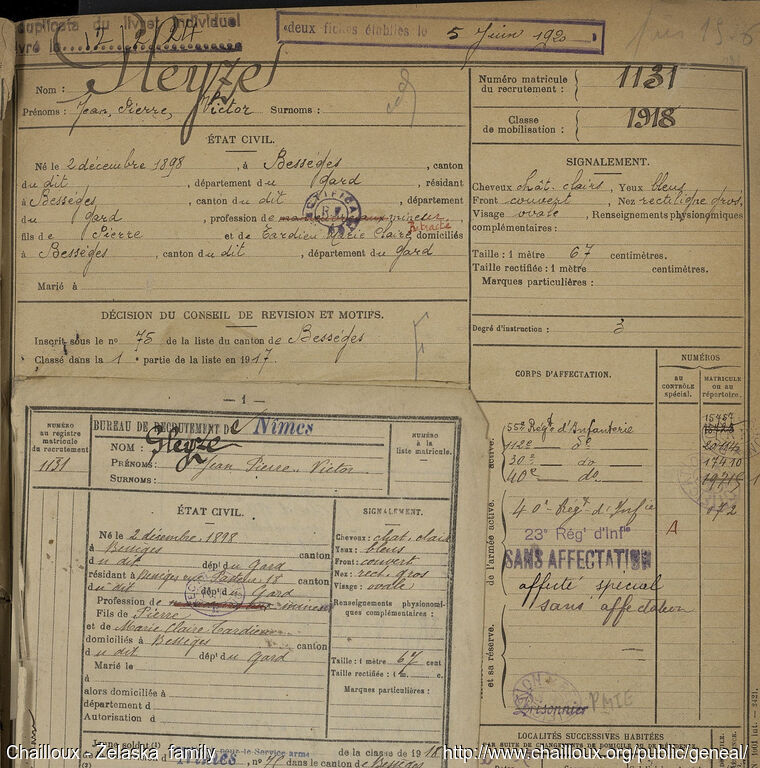 duplicata du livret individuel
12/2/24
deux fiches établies le 5 Juin 1920
Nom : Gleyze
Prénoms : Jean, Pierre, Victor Surnoms :
Numéro matricule du recrutement : 1131
Classe de mobilisation : 1918
ÉTAT CIVIL.
Né le 2 décembre 1898, à Bességes, canton
du dit, département du Gard, résidant
à Bességes, canton du dit, département
du Gard, profession de mineur
Retracté
fils de Pierre et de Tardieu Marie Claire domiciliés
à Bességes, canton du dit, département du Gard
Marié à
SIGNALEMENT.
Cheveux chât. clairs, Yeux bleus
Front couvert, Nez rectiligne gros.
Visage ovale, Renseignements physionomiques
complémentaires :
Taille : 1 mètre 67 centimètres.
Taille rectifiée : 1 mètre centimètres.
Marques particulières :
DÉCISION DU CONSEIL DE REVISION ET MOTIFS.
Inscrit sous le no 75 de la liste du canton de Bességes
Classé dans la 1 partie de la liste en 1917
Degré d'instruction : 3
CORPS D'AFFECTATION.
NUMÉROS
AU CONTRÔLE spécial.
MATRICULE ou au répertoire.
de l'armée active.
55e Régt d'Infanterie
112e do
30e do 17410
40e do 19715
40e Régt d'Infie 172
23e Régt d'Infie A
SANS AFFECTATION
affecté spécial
sans affectation
et sa réserve.
PMIE
LOCALITÉS SUCCESSIVES HABITÉES
PAR SUITE DE CHANGEMENTS DE DOMICILE OU DE RÉSIDENCE.
— 1 —
NUMÉRO au registre matricule du recrutement
1131
BUREAU DE RECRUTEMENT de Nîmes
NOM : Gleyze
PRÉNOMS : Jean Pierre Victor
SURNOMS :
NUMÉRO à la liste matricule.
ÉTAT CIVIL.
Né le 2 décembre 1898
à Bességes canton
du dit dépt du Gard
résidant à Bességes rue 18
du dit dépt du Gard
Profession de mineur
Fils de Pierre
et de Marie Claire Tardieu
domiciliés à Bességes canton
du dit dépt du Gard
Marié le
à
alors domiciliée à
département d
Autorisation d
SIGNALEMENT.
Cheveux : chat. clair
Yeux : bleus
Front : couvert
Nez : rect. gros
Visage : ovale
Renseignements physionomiques complémentaires :
Taille : 1 mètre 67 cent
Taille rectifiée : 1 m. c.
Marques particulières :
Jeune soldat (1) pour le Service armé de la classe de 1918
de Nîmes, no 75 dans le canton de Bességes
Chailloux - Żelaska family
http://www.chailloux.org/public/geneal/